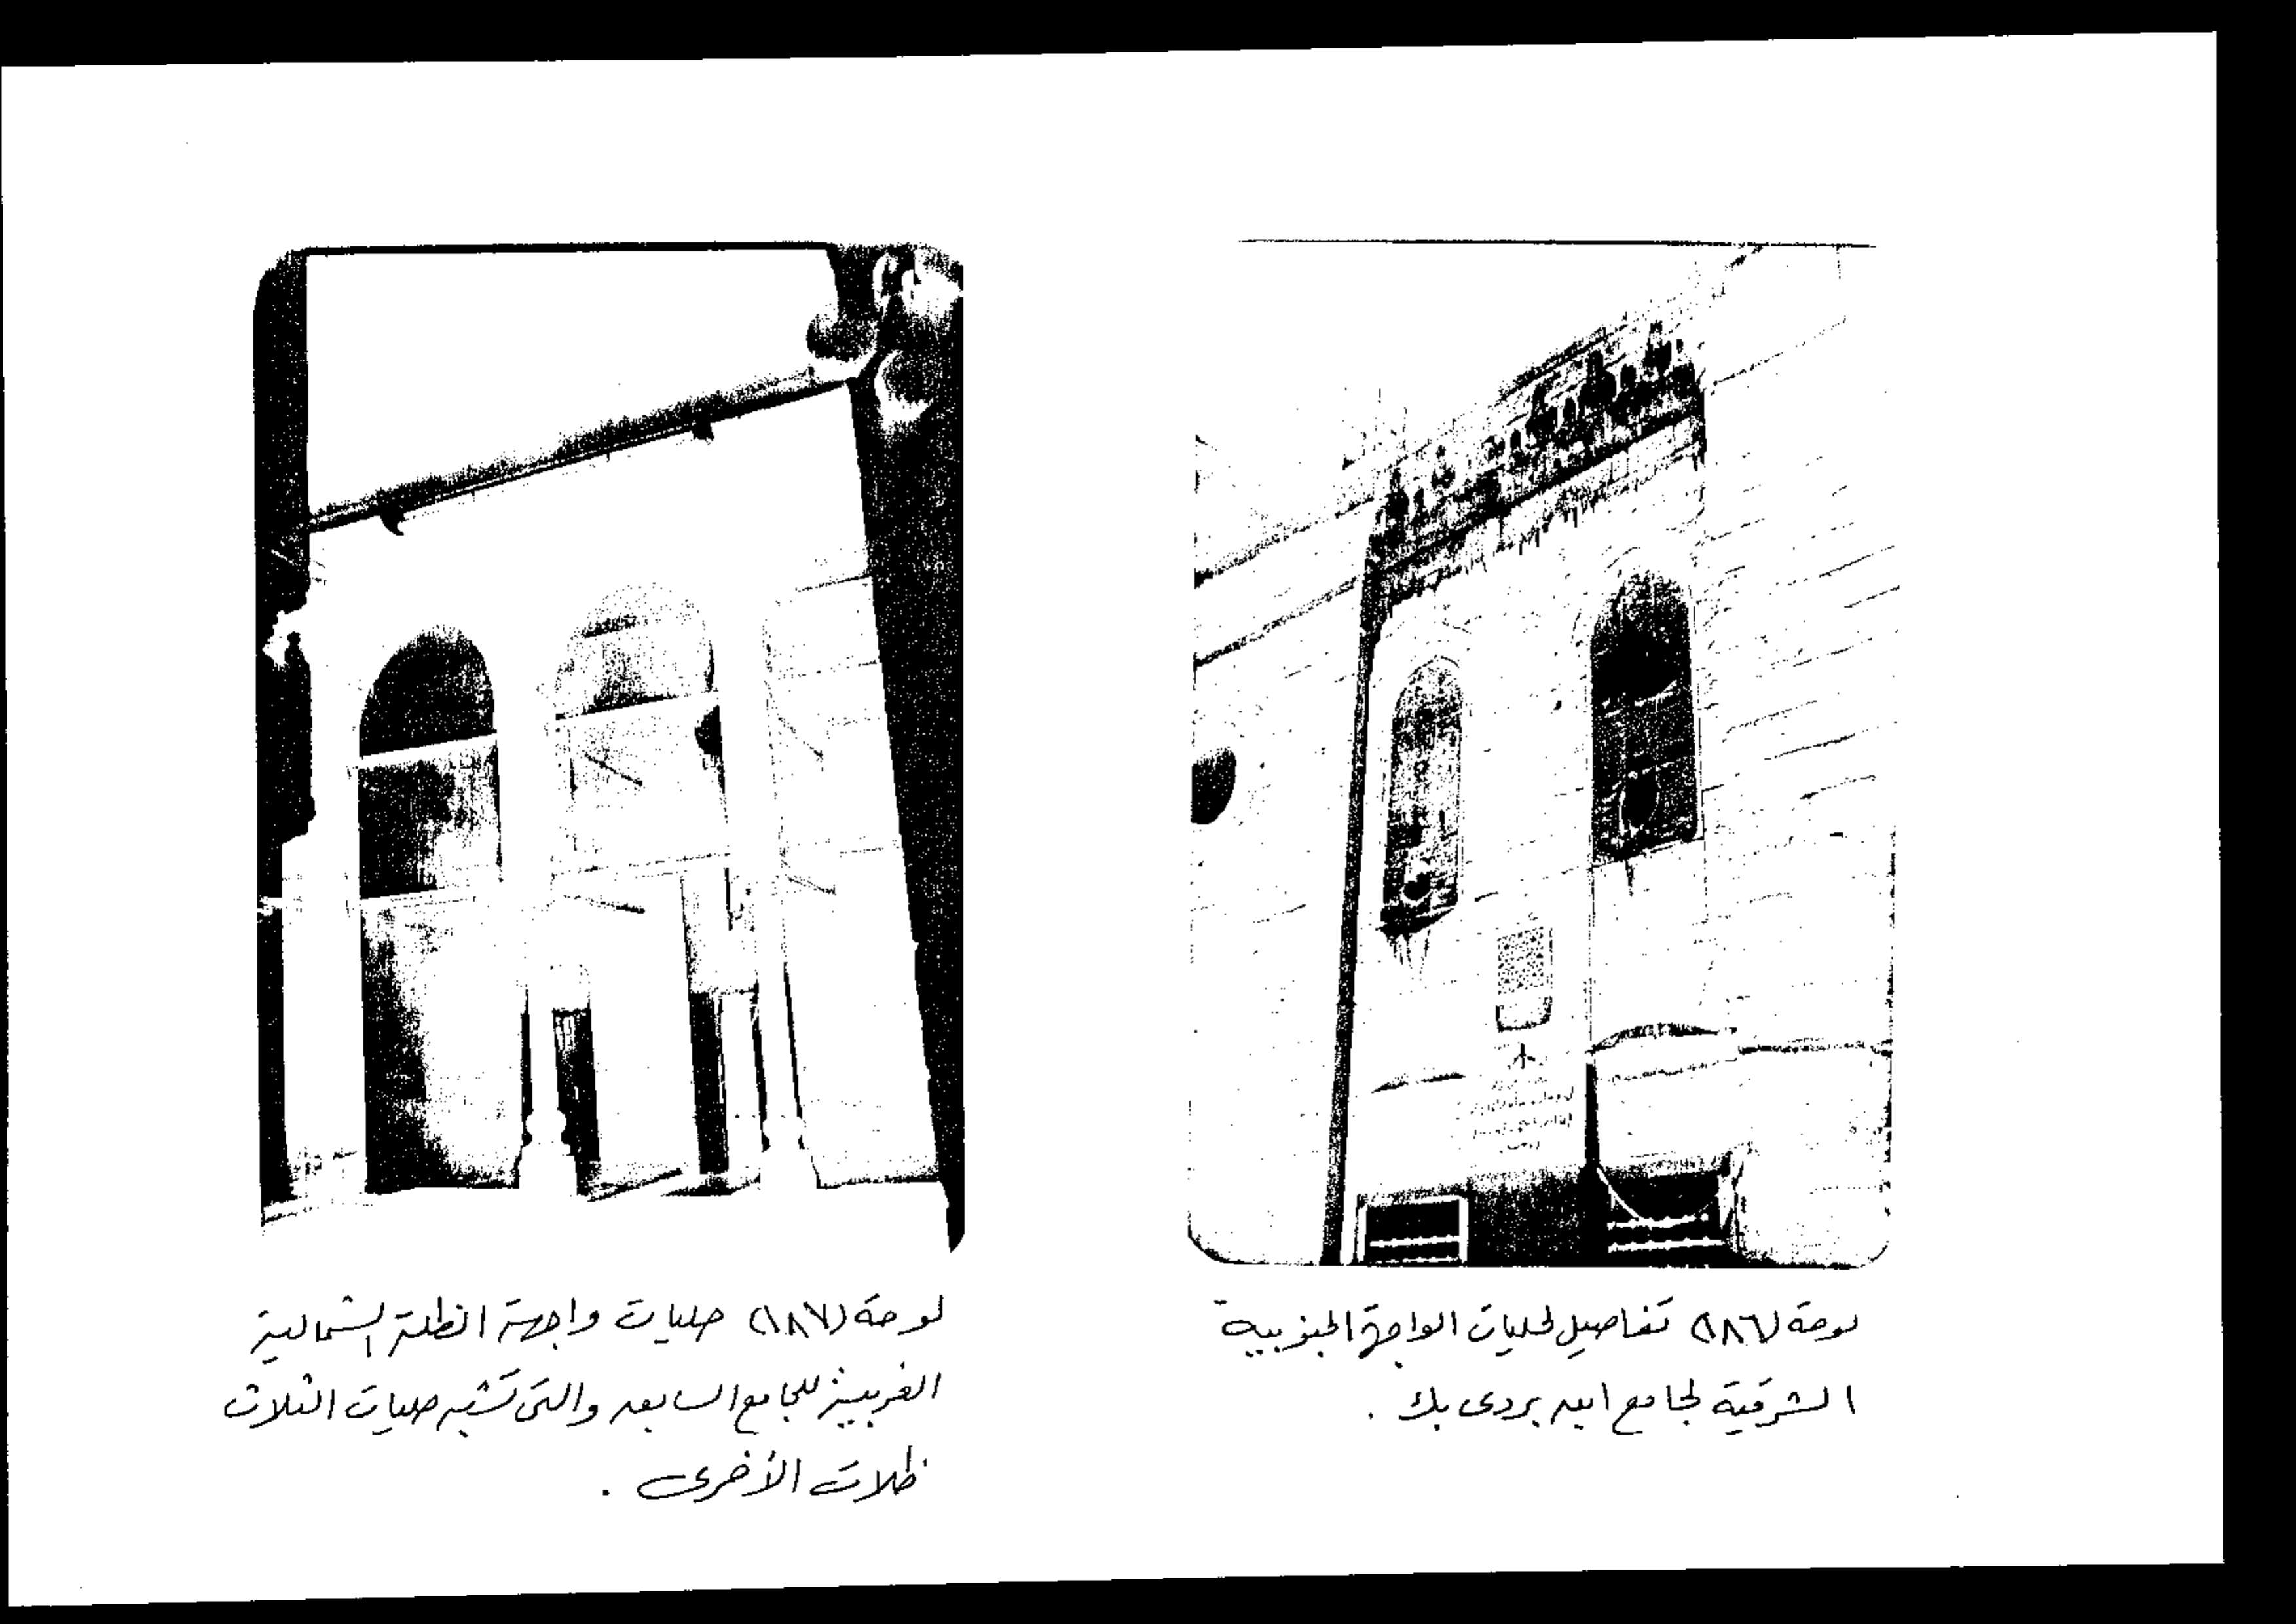 لوحة (١٨٦) تفاصيل لحليات الواجهة الجنوبية
الشرقية لجامع ابن بردى بك .
لوحة (١٨٧) حليات واجهة الظلة الشمالية
الغربية للجامع السابق والتى تشبه حليات الثلاث
ظلات الأخرى .